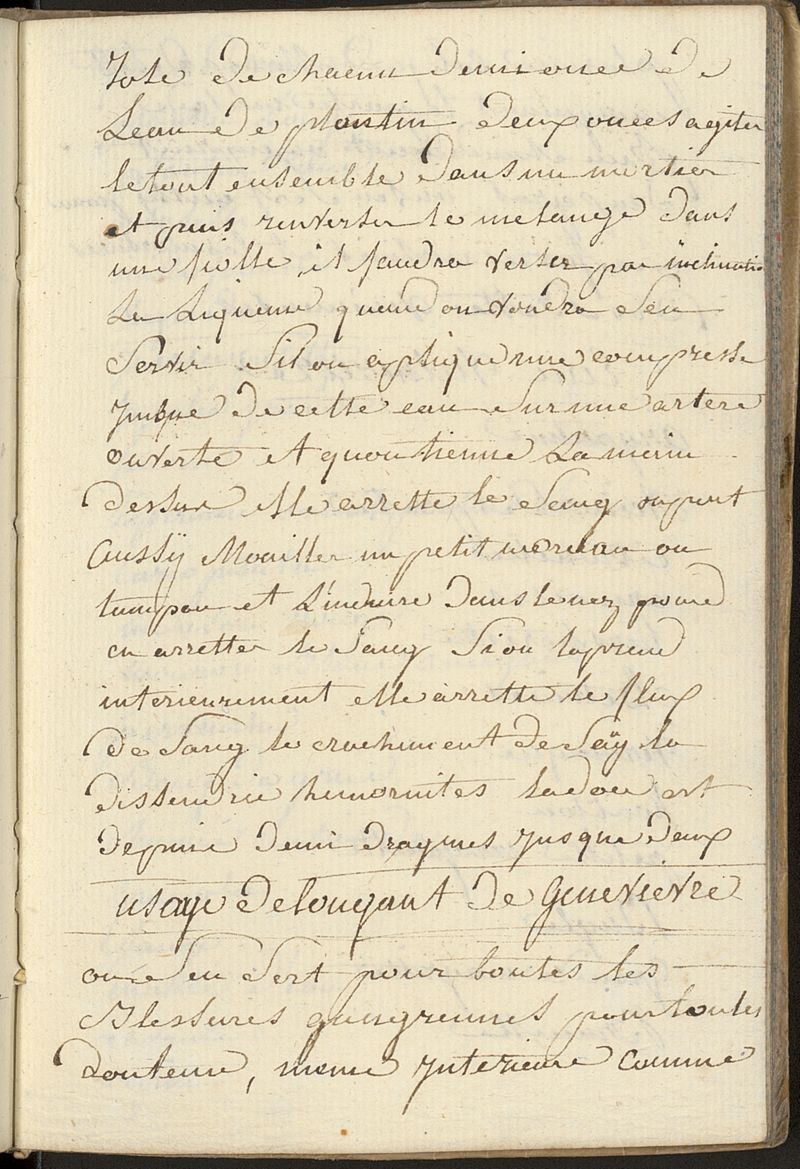 de chacun demi once de
Leau de plantin deux onces agiter
le tout ensemble dans un mortier
et puis renverser le melange dans
une fiolle, il faudra verser par inclinatio
La Liqueur quand on voudra Sen
Servir Sil on aplique une compresse
ymbue de cette eau Sur une artere
ouverte et quon tienne La main
dessus elle arrette le Sang on peut
aussÿ Mouiller un petit morceau ou
tampon et Linduire dans le nez pour
en arretter le Sang Si on la prend
interieurement elle arrette le flux
de Sang le crachement de la
dissendrie hemoroites la doze est
depuis demi dragmes jusque deux
usage de longant de Genevievre
on Sen Sert pour toutes les
Blessures gangrennes pour toutes
douleur, meme ynterieure comme